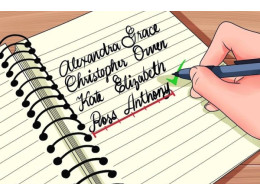 Alexandra Grace
Christopher Owen
Kate Elizabeth
Ross Anthony